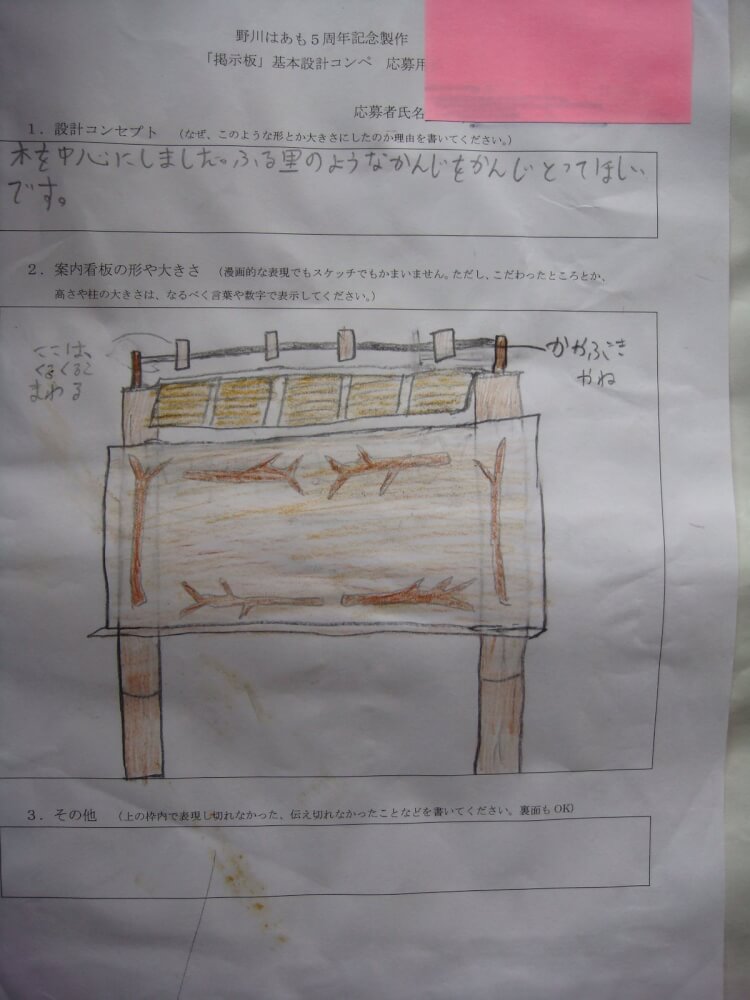 野川はあも5周年記念製作
「掲示板」基本設計コンペ 応募用
応募者氏名
1．設計コンセプト （なぜ、このような形とか大きさにしたのか理由を書いてください。）
木を中心にしました。ふる里のようなかんじをかんじとってほしい
です。
2．案内看板の形や大きさ （漫画的な表現でもスケッチでもかまいません。ただし、こだわったところとか、
高さや柱の大きさは、なるべく言葉や数字で表示してください。）
ここは、
くるくる
まわる
かやぶき
やね
3．その他 （上の枠内で表現し切れなかった、伝え切れなかったことなどを書いてください。裏面もOK）